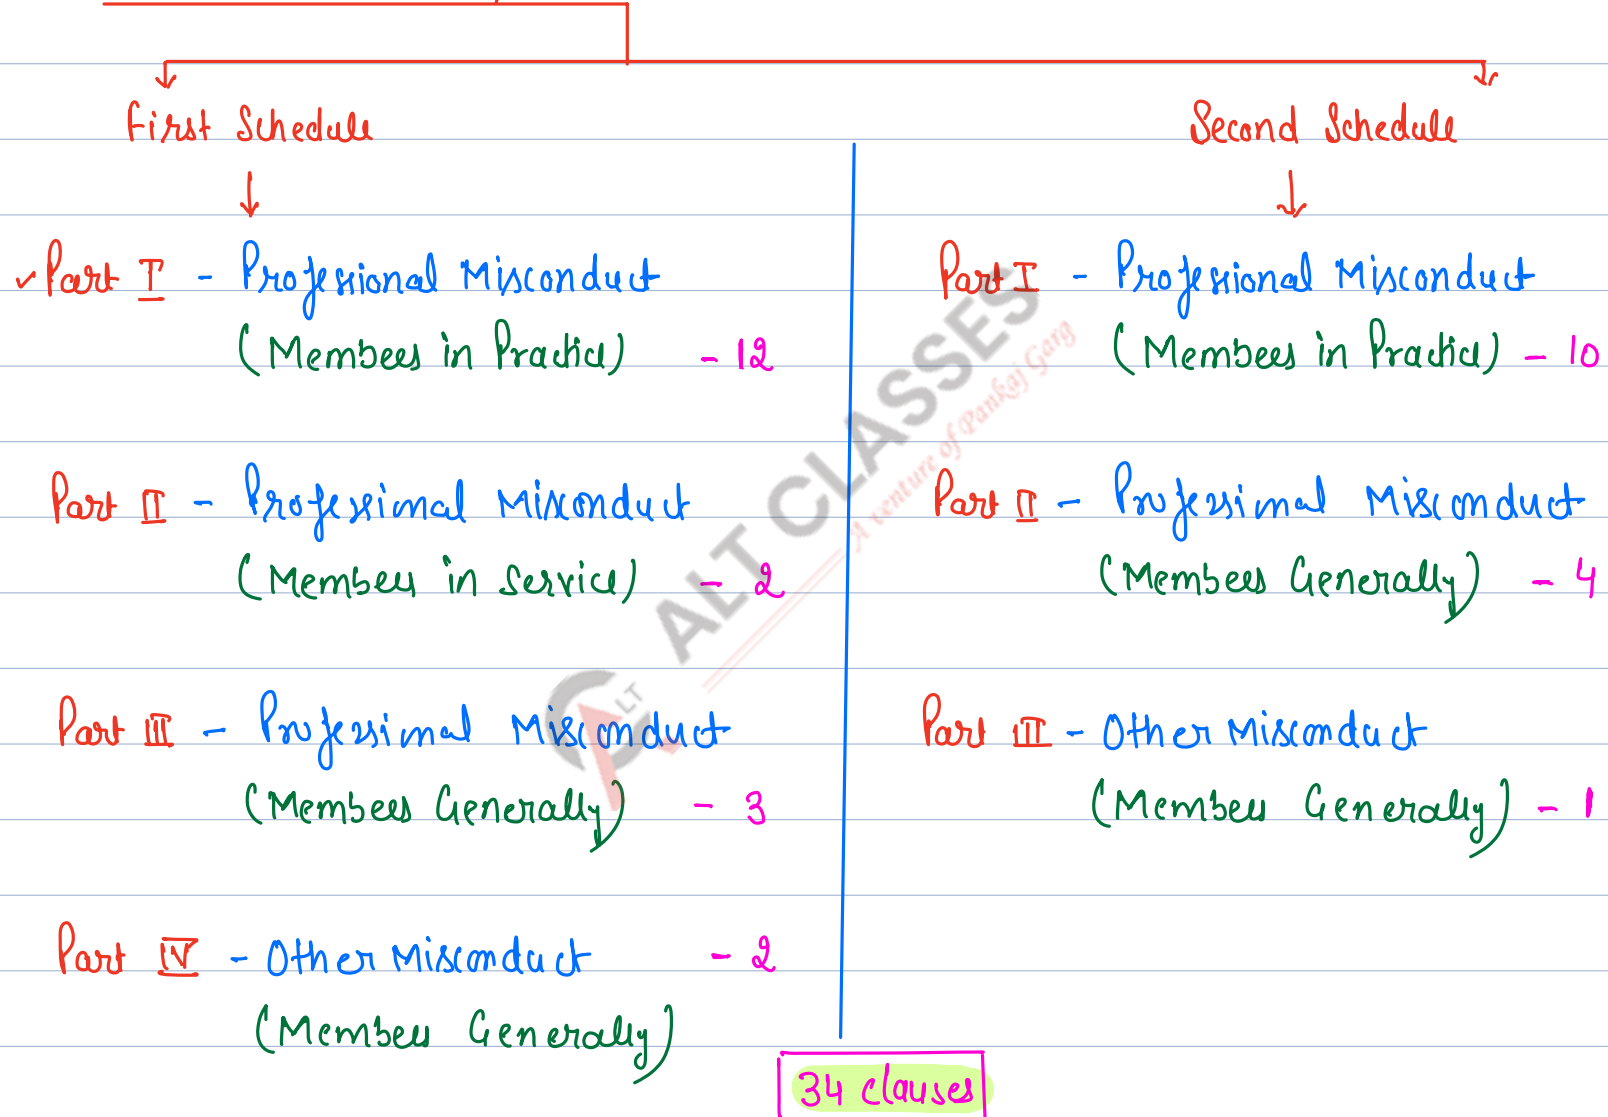 First Schedule
Second Schedule
Part I - Professional Misconduct
(Members in Practice) - 12
Part II - Professional Misconduct
(Members in Service) - 2
Part III - Professional Misconduct
(Members Generally) - 3
Part IV - Other Misconduct - 2
(Members Generally)
Part I - Professional Misconduct
(Members in Practice) - 10
Part II - Professional Misconduct
(Members Generally) - 4
Part III - Other Misconduct
(Members Generally) - 1
34 clauses
ALT CLASSES
A venture of Pankaj Garg
LT